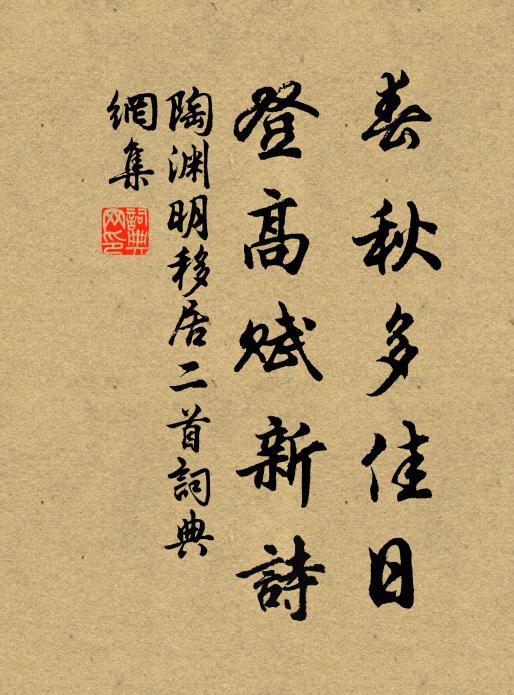 春秋多佳日
登高賦新詩
陶渊明移居二首詞典
網集
詞典
网印